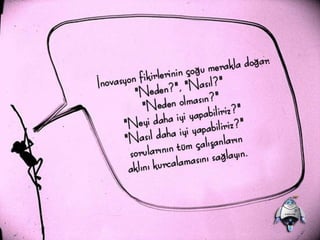 İnovasyon fikirlerinin çoğu merakla doğar.
"Neden?", "Nasıl?"
"Neden olmasın?"
"Neyi daha iyi yapabiliriz?"
"Nasıl daha iyi yapabiliriz?"
sorularının tüm çalışanların
aklını kurcalamasını sağlayın.